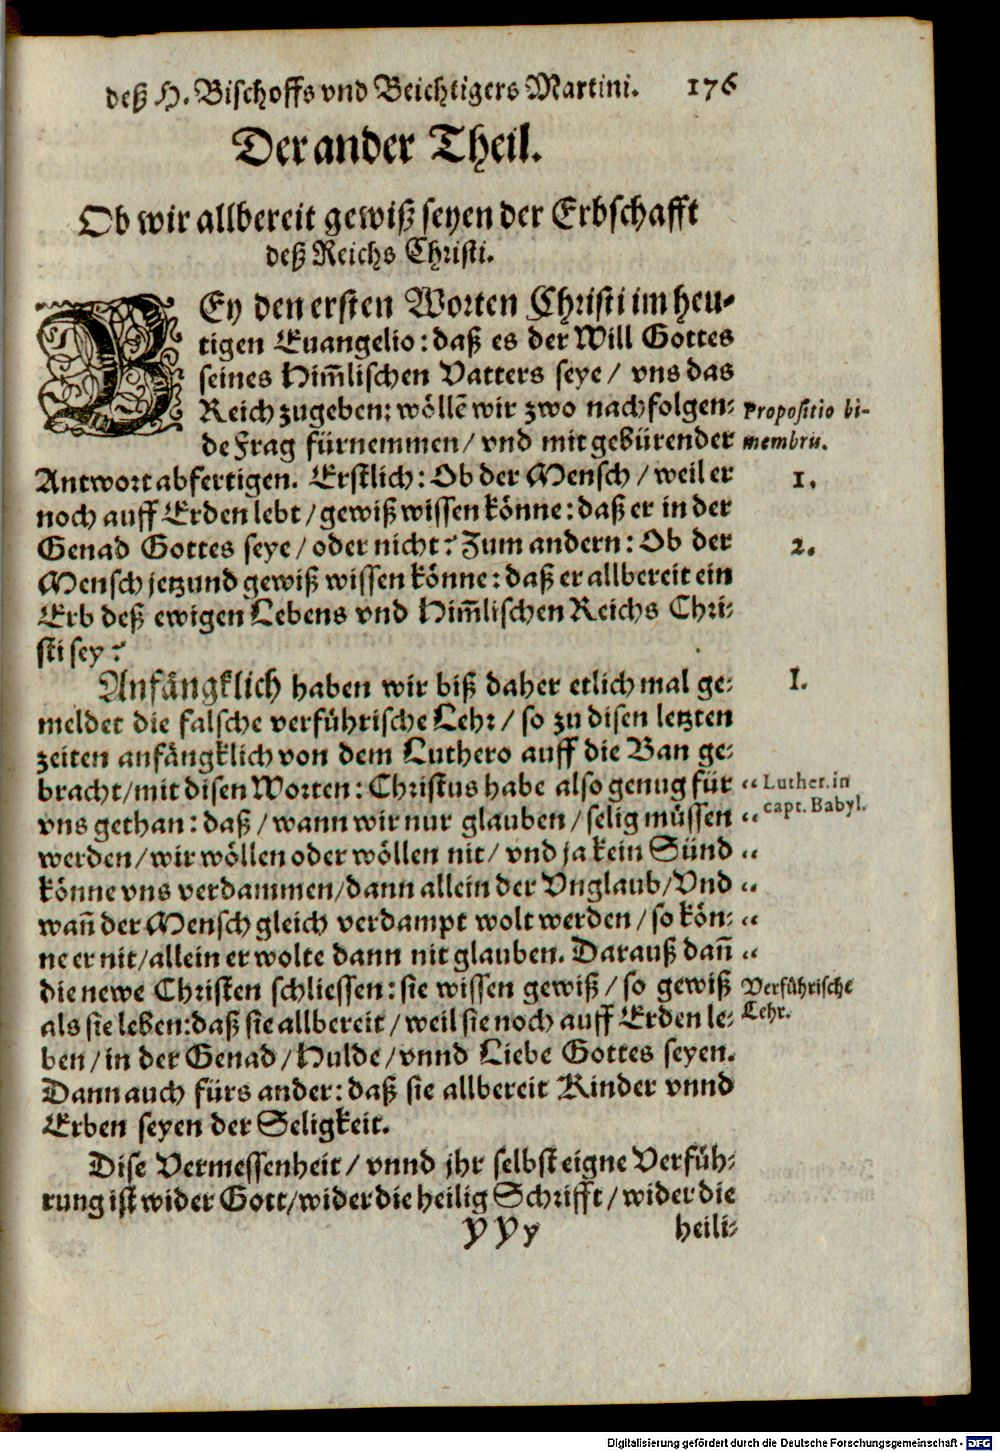 deß H. Bischoffs vnd Beichtigers Martini. 176
Der ander Theil.
Ob wir allbereit gewiß seyen der Erbschafft
deß Reichs Christi.
BEy den ersten Worten Christi im heu-
tigen Euangelio: daß es der Will Gottes
seines Him̃lischen Vatters seye / vns das
Reich zugeben: wöllē wir zwo nachfolgen- Propositio bi-
de Frag fürnemmen / vnd mit gebürender membris.
Antwort abfertigen. Erstlich: Ob der Mensch / weil er 1.
noch auff Erden lebt / gewiß wissen könne: daß er in der
Genad Gottes seye / oder nicht? Zum andern: Ob der 2.
Mensch jetzund gewiß wissen könne: daß er allbereit ein
Erb deß ewigen Lebens vnd Him̃lischen Reichs Chri-
sti sey?
Anfängklich haben wir biß daher etlich mal ge- I.
meldet die falsche verführische Lehr / so zu disen letzten
zeiten anfängklich von dem Luthero auff die Ban ge-
bracht / mit disen Worten: Christus habe also genug für “ Luther. in
vns gethan: daß / wann wir nur glauben / selig müssen “ capt. Babyl.
werden / wir wöllen oder wöllen nit / vnd ja kein Sünd “
könne vns verdammen / dann allein der Vnglaub / Vnd “
wañ der Mensch gleich verdampt wolt werden / so kön- “
ne er nit / allein er wolte dann nit glauben. Darauß dañ “
die newe Christen schliessen: sie wissen gewiß / so gewiß Verführische
als sie leben: daß sie allbereit / weil sie noch auff Erden le- Lehr.
ben / in der Genad / Hulde / vnnd Liebe Gottes seyen.
Dann auch fürs ander: daß sie allbereit Kinder vnnd
Erben seyen der Seligkeit.
Dise Vermessenheit / vnnd jhr selbst eigne Verfüh-
rung ist wider Gott / wider die heilig Schrifft / wider die
Y Y y heili-
Digitalisierung gefördert durch die Deutsche Forschungsgemeinschaft - DFG